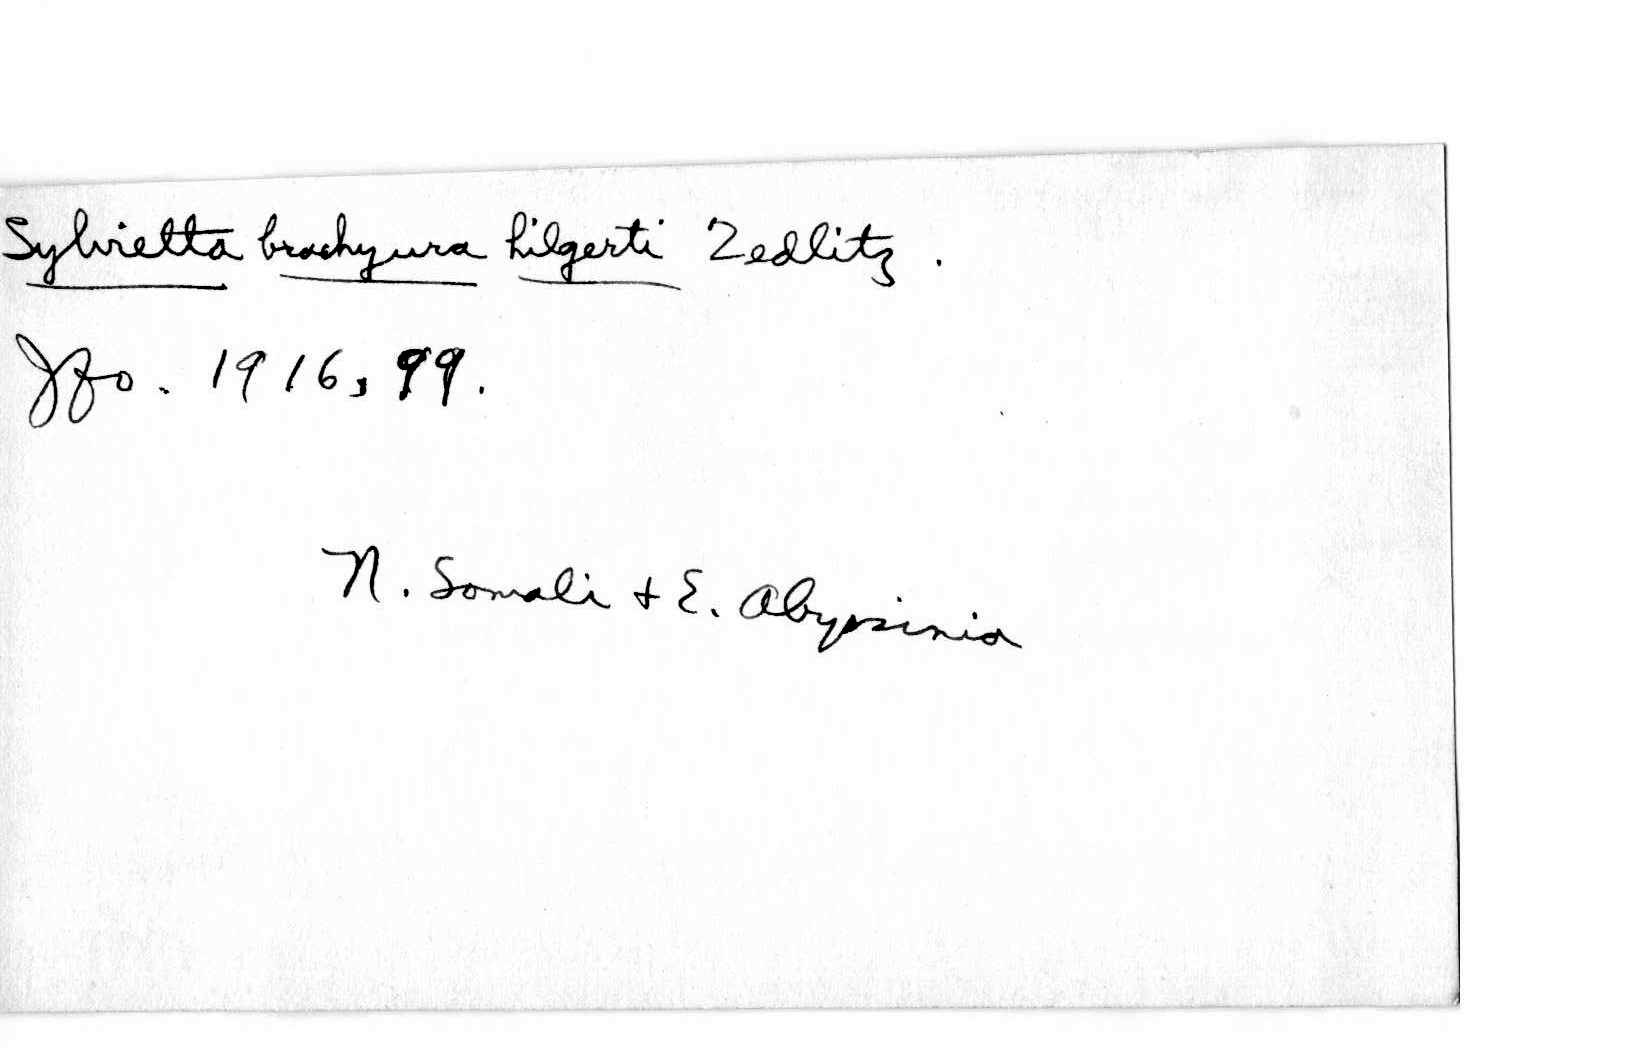 Sylvietta brachyura hilgerti Zedlitz.
Jfo. 1916, 99.
N. Somali + E. Abyssinia